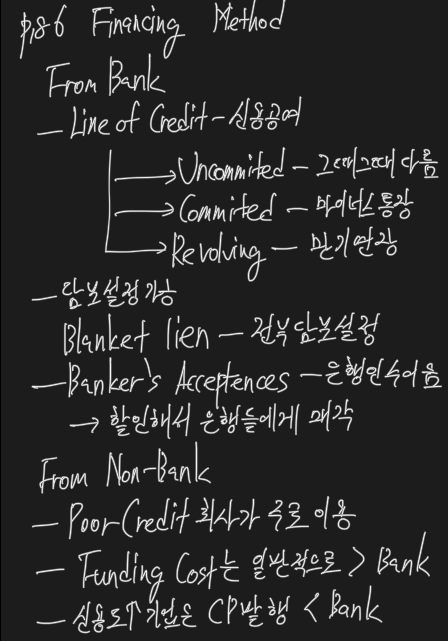 p.86 Financing Method
From Bank
- Line of Credit - 신용공여
→ Uncommited - 그때그때 다름
→ Commited - 마이너스통장
→ Revolving - 만기연장
- 담보설정가능
Blanket lien - 전부담보설정
- Banker's Acceptences - 은행인수어음
→ 할인해서 은행들에게 매각
From Non-Bank
- Poor Credit 회사가 주로 이용
- Funding Cost는 일반적으로 > Bank
- 신용도↑ 기업은 CP발행 < Bank